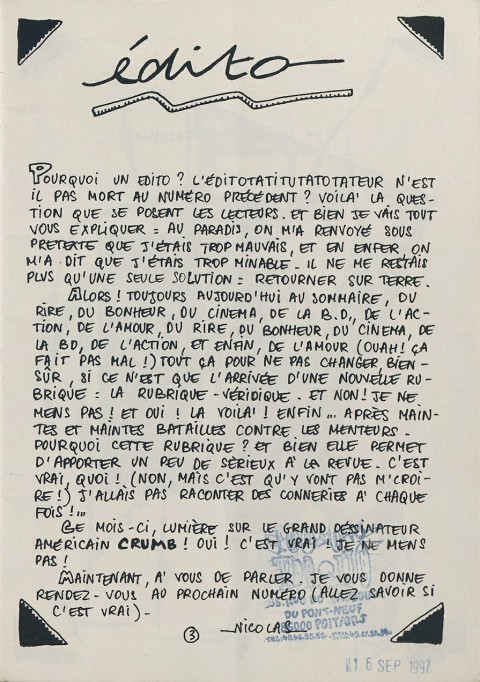 édito
POURQUOI UN EDITO ? L'ÉDITOTATITUTATOTATEUR N'EST
IL PAS MORT AU NUMÉRO PRÉCÉDENT ? VOILA' LA QUES-
TION QUE SE POSENT LES LECTEURS. ET BIEN JE VAIS TOUT
VOUS EXPLIQUER : AU PARADIS, ON M'A RENVOYÉ SOUS
PRETEXTE QUE J'ÉTAIS TROP MAUVAIS, ET EN ENFER, ON
M'A DIT QUE J'ÉTAIS TROP MINABLE. IL NE ME RESTAIS
PLUS QU'UNE SEULE SOLUTION : RETOURNER SUR TERRE.
ALORS ! TOUJOURS AUJOURD'HUI AU SOMMAIRE, DU
RIRE, DU BONHEUR, DU CINEMA, DE LA B.D., DE L'AC-
TION, DE L'AMOUR, DU RIRE, DU BONHEUR, DU CINÉMA, DE
LA BD, DE L'ACTION, ET ENFIN, DE L'AMOUR (OUAH ! ÇA
FAIT PAS MAL !) TOUT ÇA POUR NE PAS CHANGER, BIEN-
SÛR, SI CE N'EST QUE L'ARRIVÉE D'UNE NOUVELLE RU-
BRIQUE : LA RUBRIQUE-VÉRIDIQUE. ET NON ! JE NE
MENS PAS ! ET OUI ! LA VOILA' ! ENFIN... APRÈS MAIN-
TES ET MAINTES BATAILLES CONTRE LES MENTEURS.
POURQUOI CETTE RUBRIQUE ? ET BIEN ELLE PERMET
D'APPORTER UN PEU DE SÉRIEUX A' LA REVUE. C'EST
VRAI, QUOI ! (NON, MAIS C'EST QU'Y VONT PAS M'CROI-
RE !) J'ALLAIS PAS RACONTER DES CONNERIES A' CHAQUE
FOIS !...
CE MOIS-CI, LUMIÈRE SUR LE GRAND DESSINATEUR
AMÉRICAIN CRUMB ! OUI ! C'EST VRAI ! JE NE MENS
PAS !
MAINTENANT, A' VOUS DE PARLER. JE VOUS DONNE
RENDEZ-VOUS AU PROCHAIN NUMÉRO (ALLEZ SAVOIR SI
C'EST VRAI)-
NICOLAS
3
DU PONT-NEUF
86000 POITIERS
16 SEP 1997